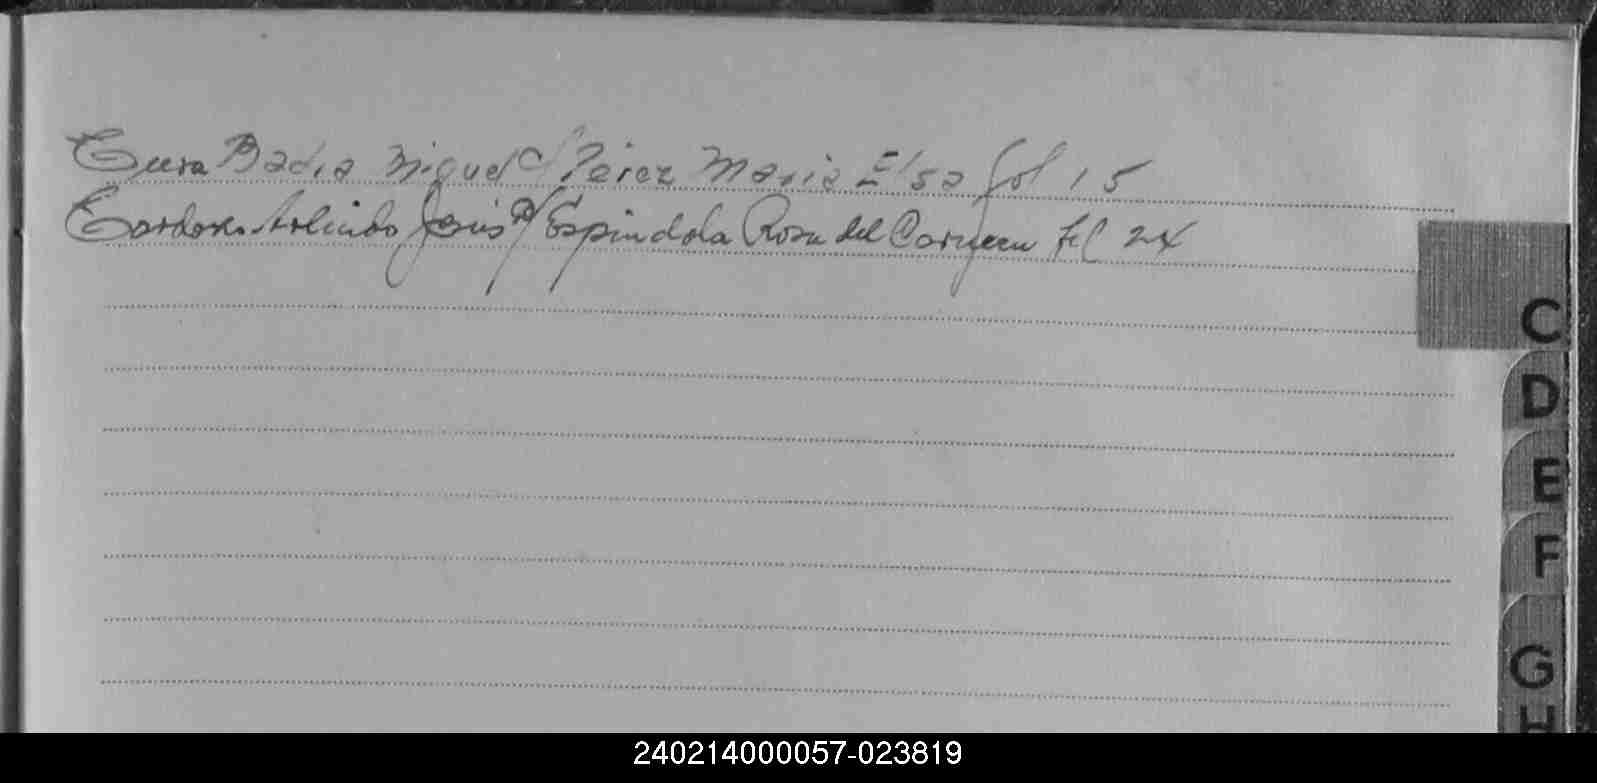 Cura Badia Miguel c/ Pérez Maria Elsa fol 15
Cardozo Arlindo Jesús c/ Espindola Rosa del Carmen fol 24
C
D
E
F
G
H
240214000057-023819